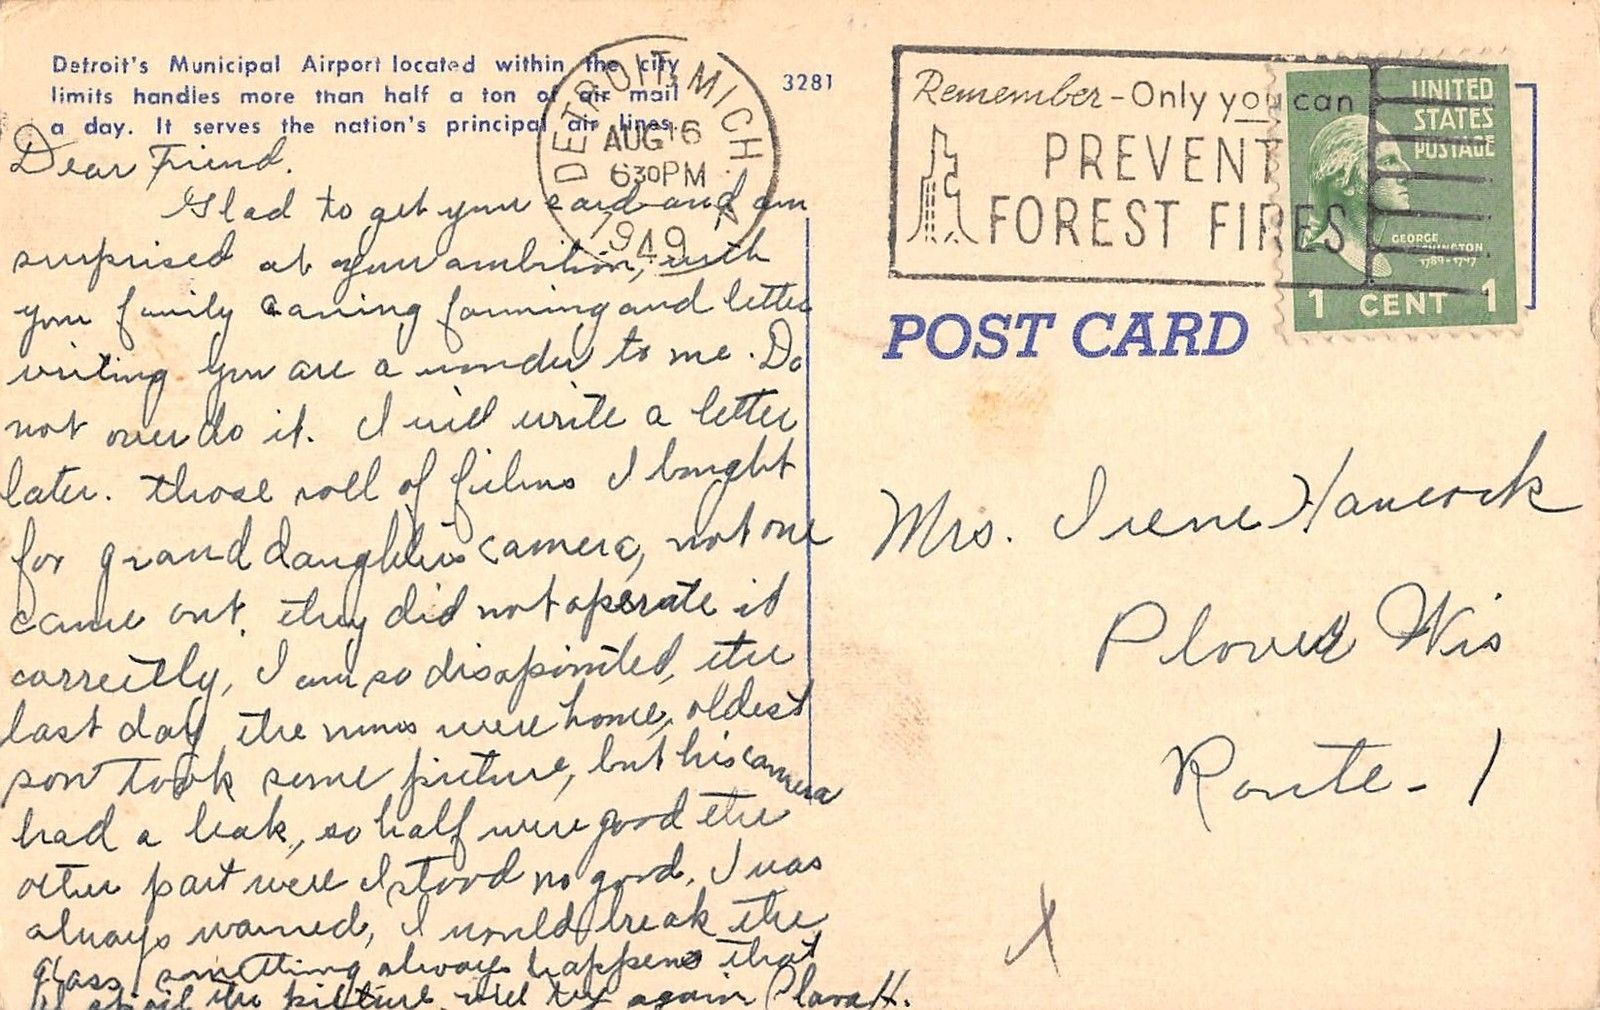 Detroit's Municipal Airport located within the city
limits handles more than half a ton of air mail
a day. It serves the nation's principal air lines.
3281
DETROIT, MICH.
AUG 16
630PM
1949
Remember - Only you can
PREVENT
FOREST FIRES
UNITED
STATES
POSTAGE
GEORGE
WASHINGTON
1789-1797
1 CENT 1
POST CARD
Dear Friend.
Glad to get your card and am
surprised at your ambition, with
your family caning farming and letter
writing you are a wonder to me. Do
not over do it. I will write a letter
later. those roll of films I bought
for grand daughters camera, not one
came out. they did not operate it
correctly, I am so disapointed, the
last day the nuns were home, oldest
son took some picture, but his camera
had a leak, so half were good the
other part were I stood no good. I was
always warned, I would break the
glass, something always happens that
spoil the picture, will try again Clara H.
Mrs. Irene Hancock
Plover Wis
Route - 1
X